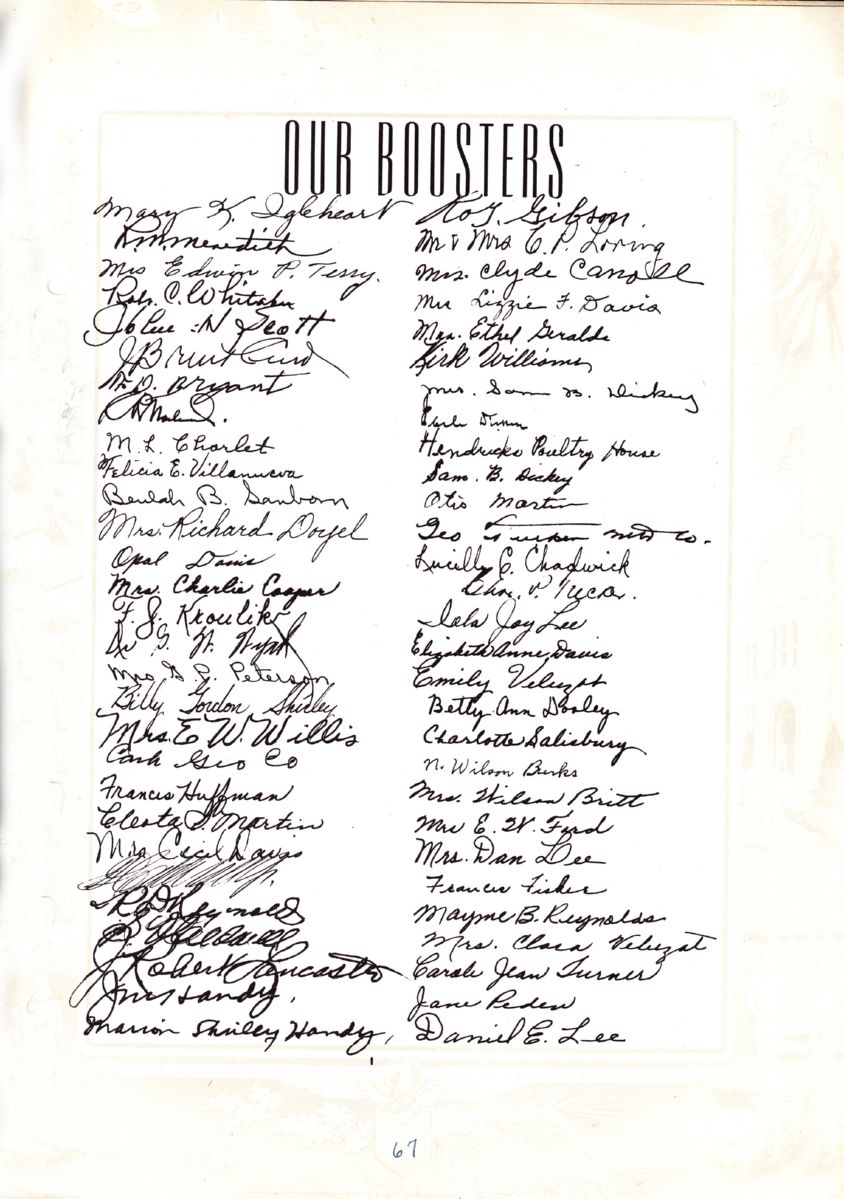 OUR BOOSTERS
Mary K. Igleheart
R.M. Meredith
Mrs Edwin P. Terry.
Robt. C. Whitaker
N Scott
J Brent Curd
Bryant
M. L. Charlet
Felicia E. Villanueva
Beulah B. Sanborn
Mrs. Richard Doyel
Opal Davis
Mrs. Charlie Cooper
F. J. Kroulik
Dr G. W.
Mrs G. P. Peterson
Billy Gordon Shirley
Mrs. E. W. Willis
Co
Francis Huffman
Cleota S. Martin
Mrs Cecil Davis
R D Reynolds
J Robert Lancaster
Handy,
Marion Shirley Handy,
Gibson.
Mr & Mrs C. P. Loring
Mrs. Clyde Carroll
Mrs Lizzie F. Davis
Mrs. Ethel Geralds
Kirk Williams
Mrs. Sam B. Dickey
Earle
Hendricks Poultry House
Sam. B. Dickey
Otis Martin
Geo Co.
Lucille C. Chadwick
P.
Iola Jay Lee
Elizabeth Anne Davis
Emily Veluzat
Betty Ann Dooley
Charlotte Salisbury
N. Wilson Burks
Mrs. Wilson Britt
Mrs E. W. Ford
Mrs. Dan Lee
Francis Fisher
Mayme B. Reynolds
Mrs. Clara Veluzat
Carole Jean Turner
Jane Peden
Daniel E. Lee
67